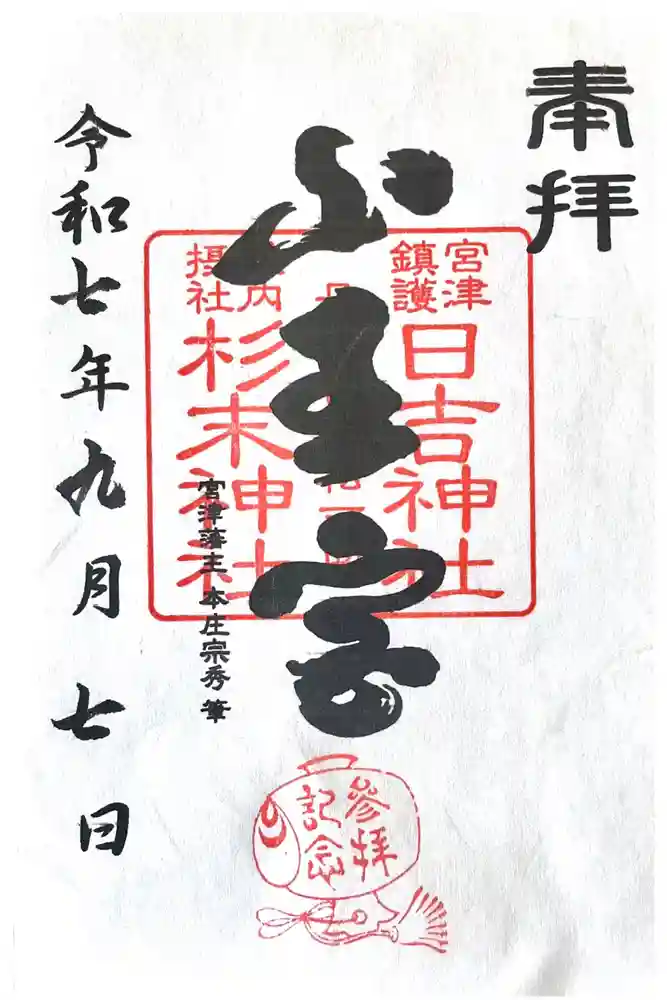 奉拝
宮津
鎮護
日吉神社
山王宮
内
摂社
杉末神社
宮津藩主 本庄宗秀 筆
令和七年九月七日
參拝
記念